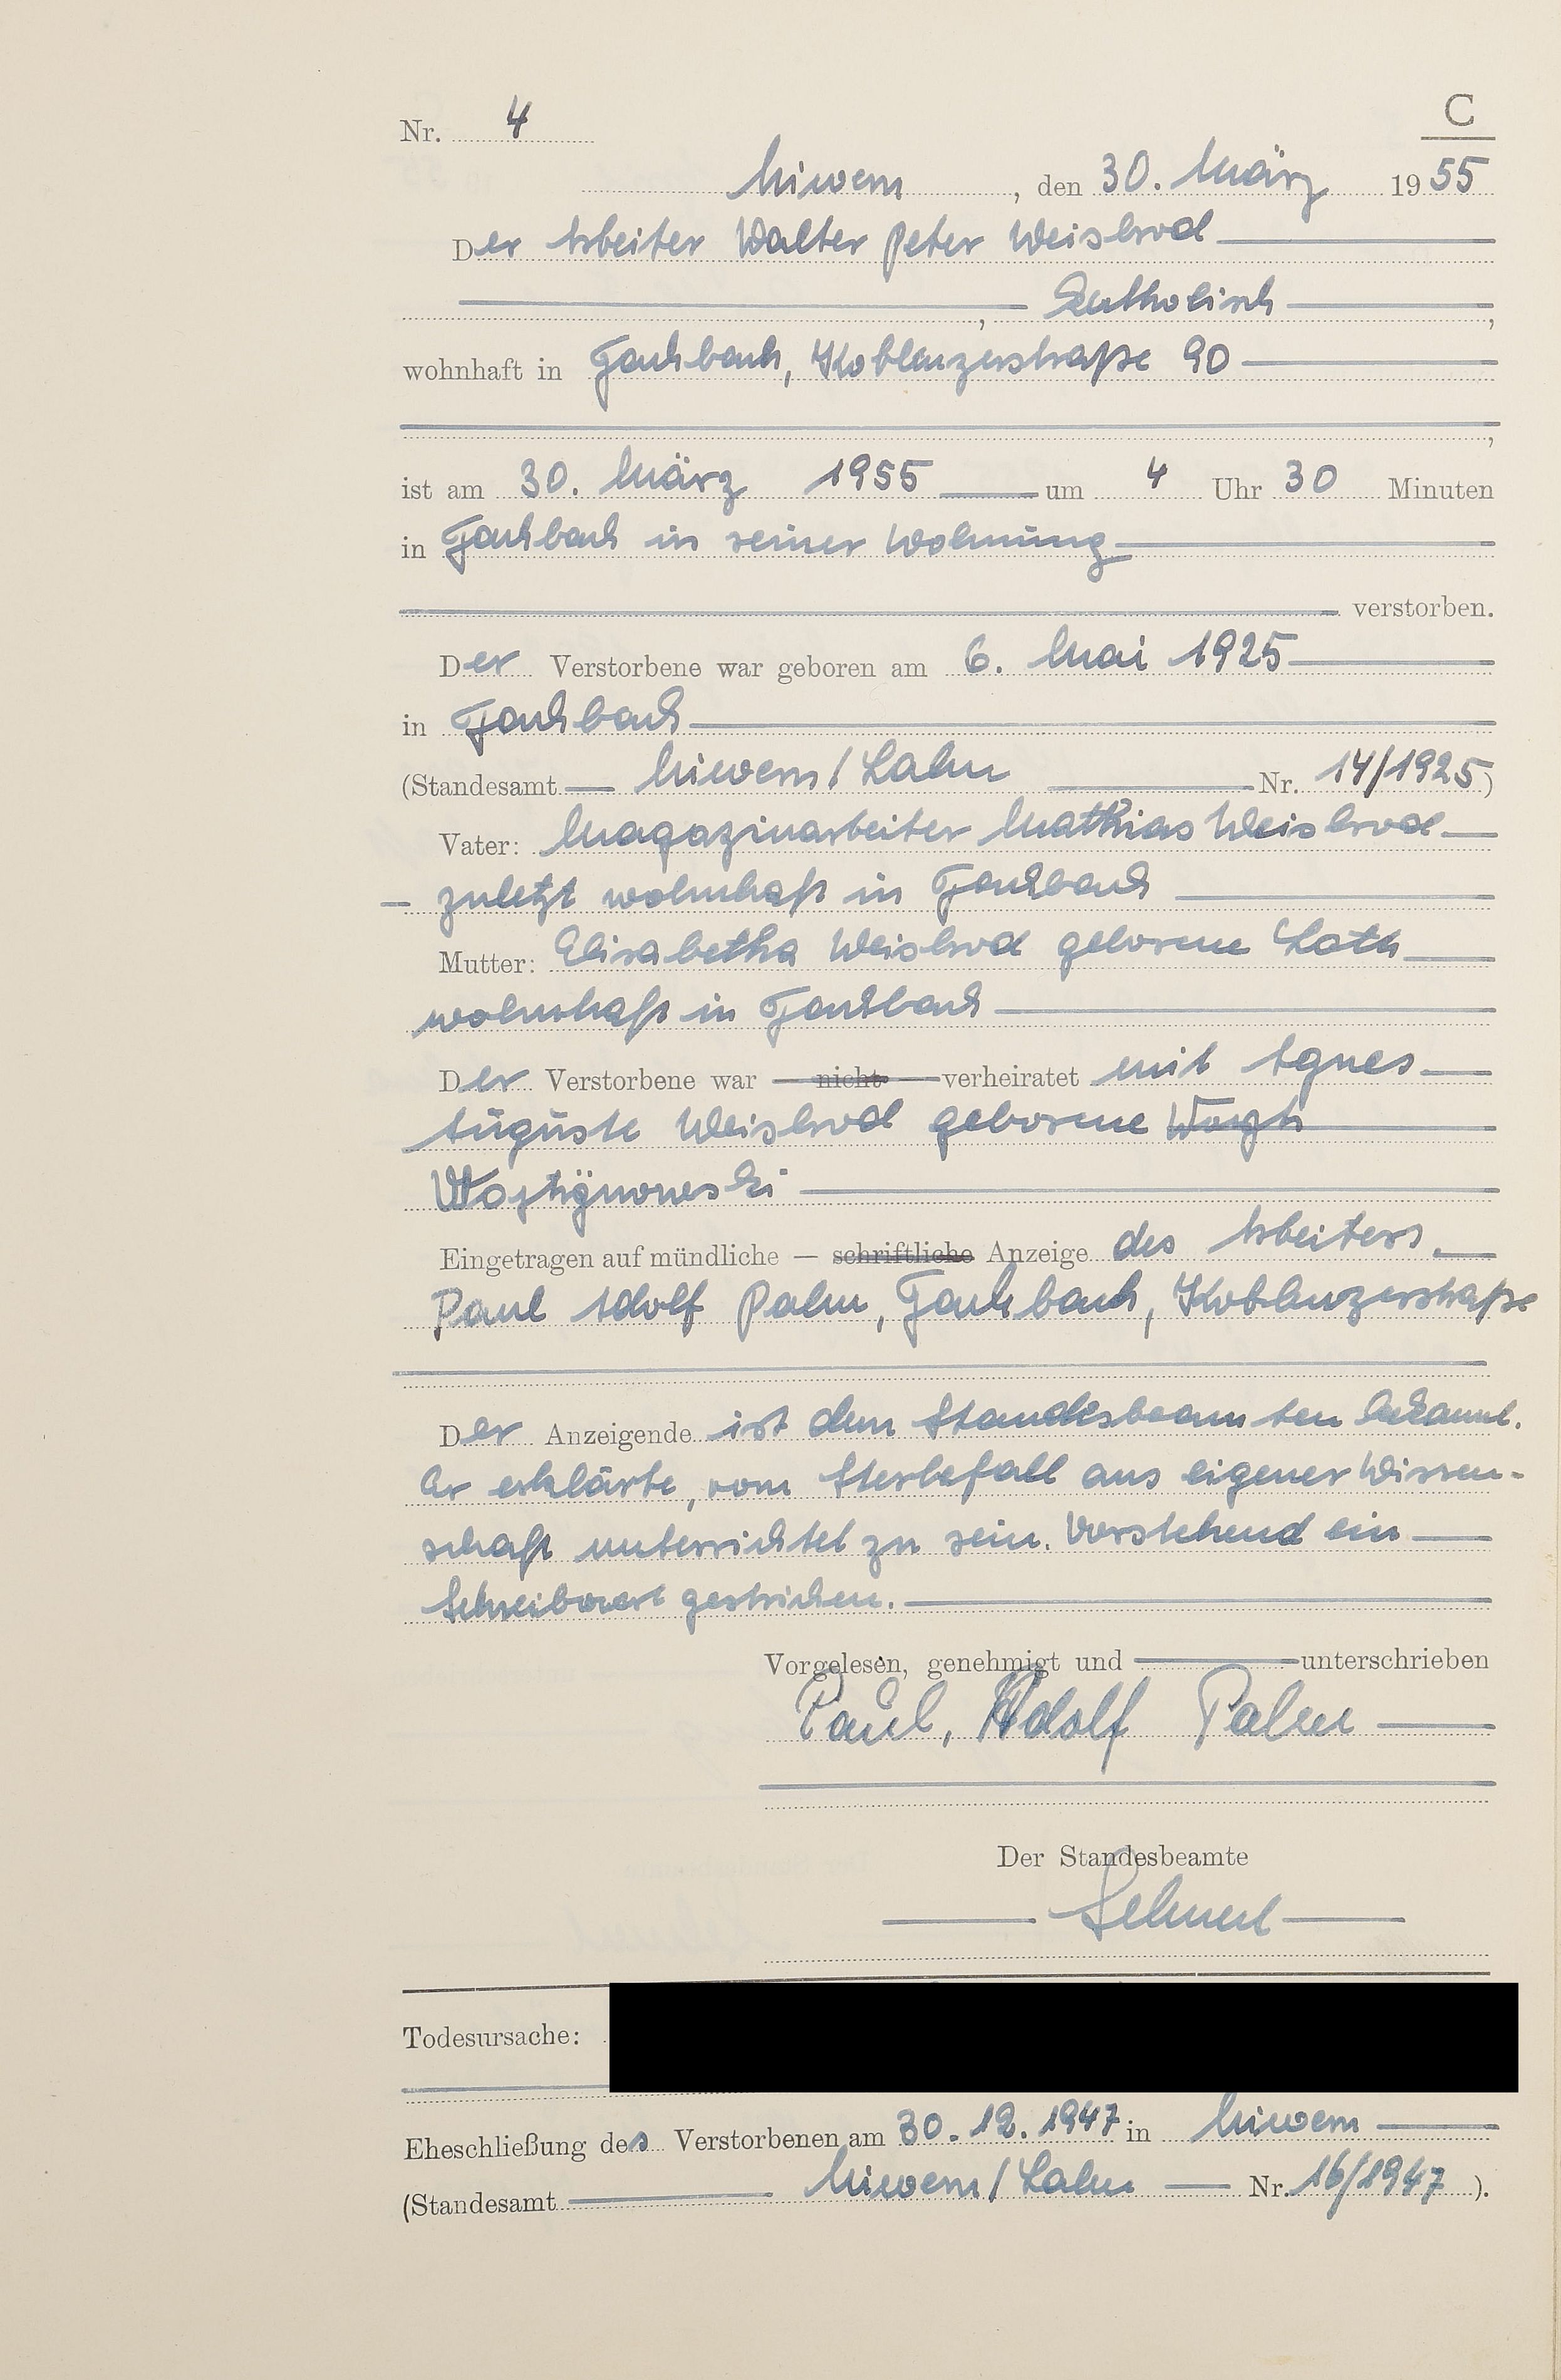 Nr. 4
C
Miwem, den 30. März 1955
Der Arbeiter Walter Peter Weisbrod
, Katholisch,
wohnhaft in Fachbach, Koblenzerstraße 90
,
ist am 30. März 1955 um 4 Uhr 30 Minuten
in Fachbach in seiner Wohnung
verstorben.
Der Verstorbene war geboren am 6. Mai 1925
in Fachbach
(Standesamt Miwem/Lahn Nr. 14/1925)
Vater: Magazinarbeiter Matthias Weisbrod
– zuletzt wohnhaft in Fachbach
Mutter: Elisabetha Weisbrod geborene Loth
wohnhaft in Fachbach
Der Verstorbene war nicht verheiratet mit Agnes
Auguste Weisbrod geborene
Eingetragen auf mündliche – schriftliche Anzeige des Arbeiters
Paul Adolf Palm, Fachbach, Koblenzerstraße
Der Anzeigende ist dem Standesbeamten bekannt.
Er erklärte, vom Sterbefall aus eigener Wissen-
schaft unterrichtet zu sein. Vorstehend ein
Schreibwort gestrichen.
Vorgelesen, genehmigt und unterschrieben
Paul, Adolf Palm
Der Standesbeamte
Todesursache:
Eheschließung des Verstorbenen am 30.12.1947 in Miwem
(Standesamt Miwem/Lahn Nr. 16/1947).